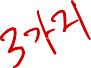 3가리